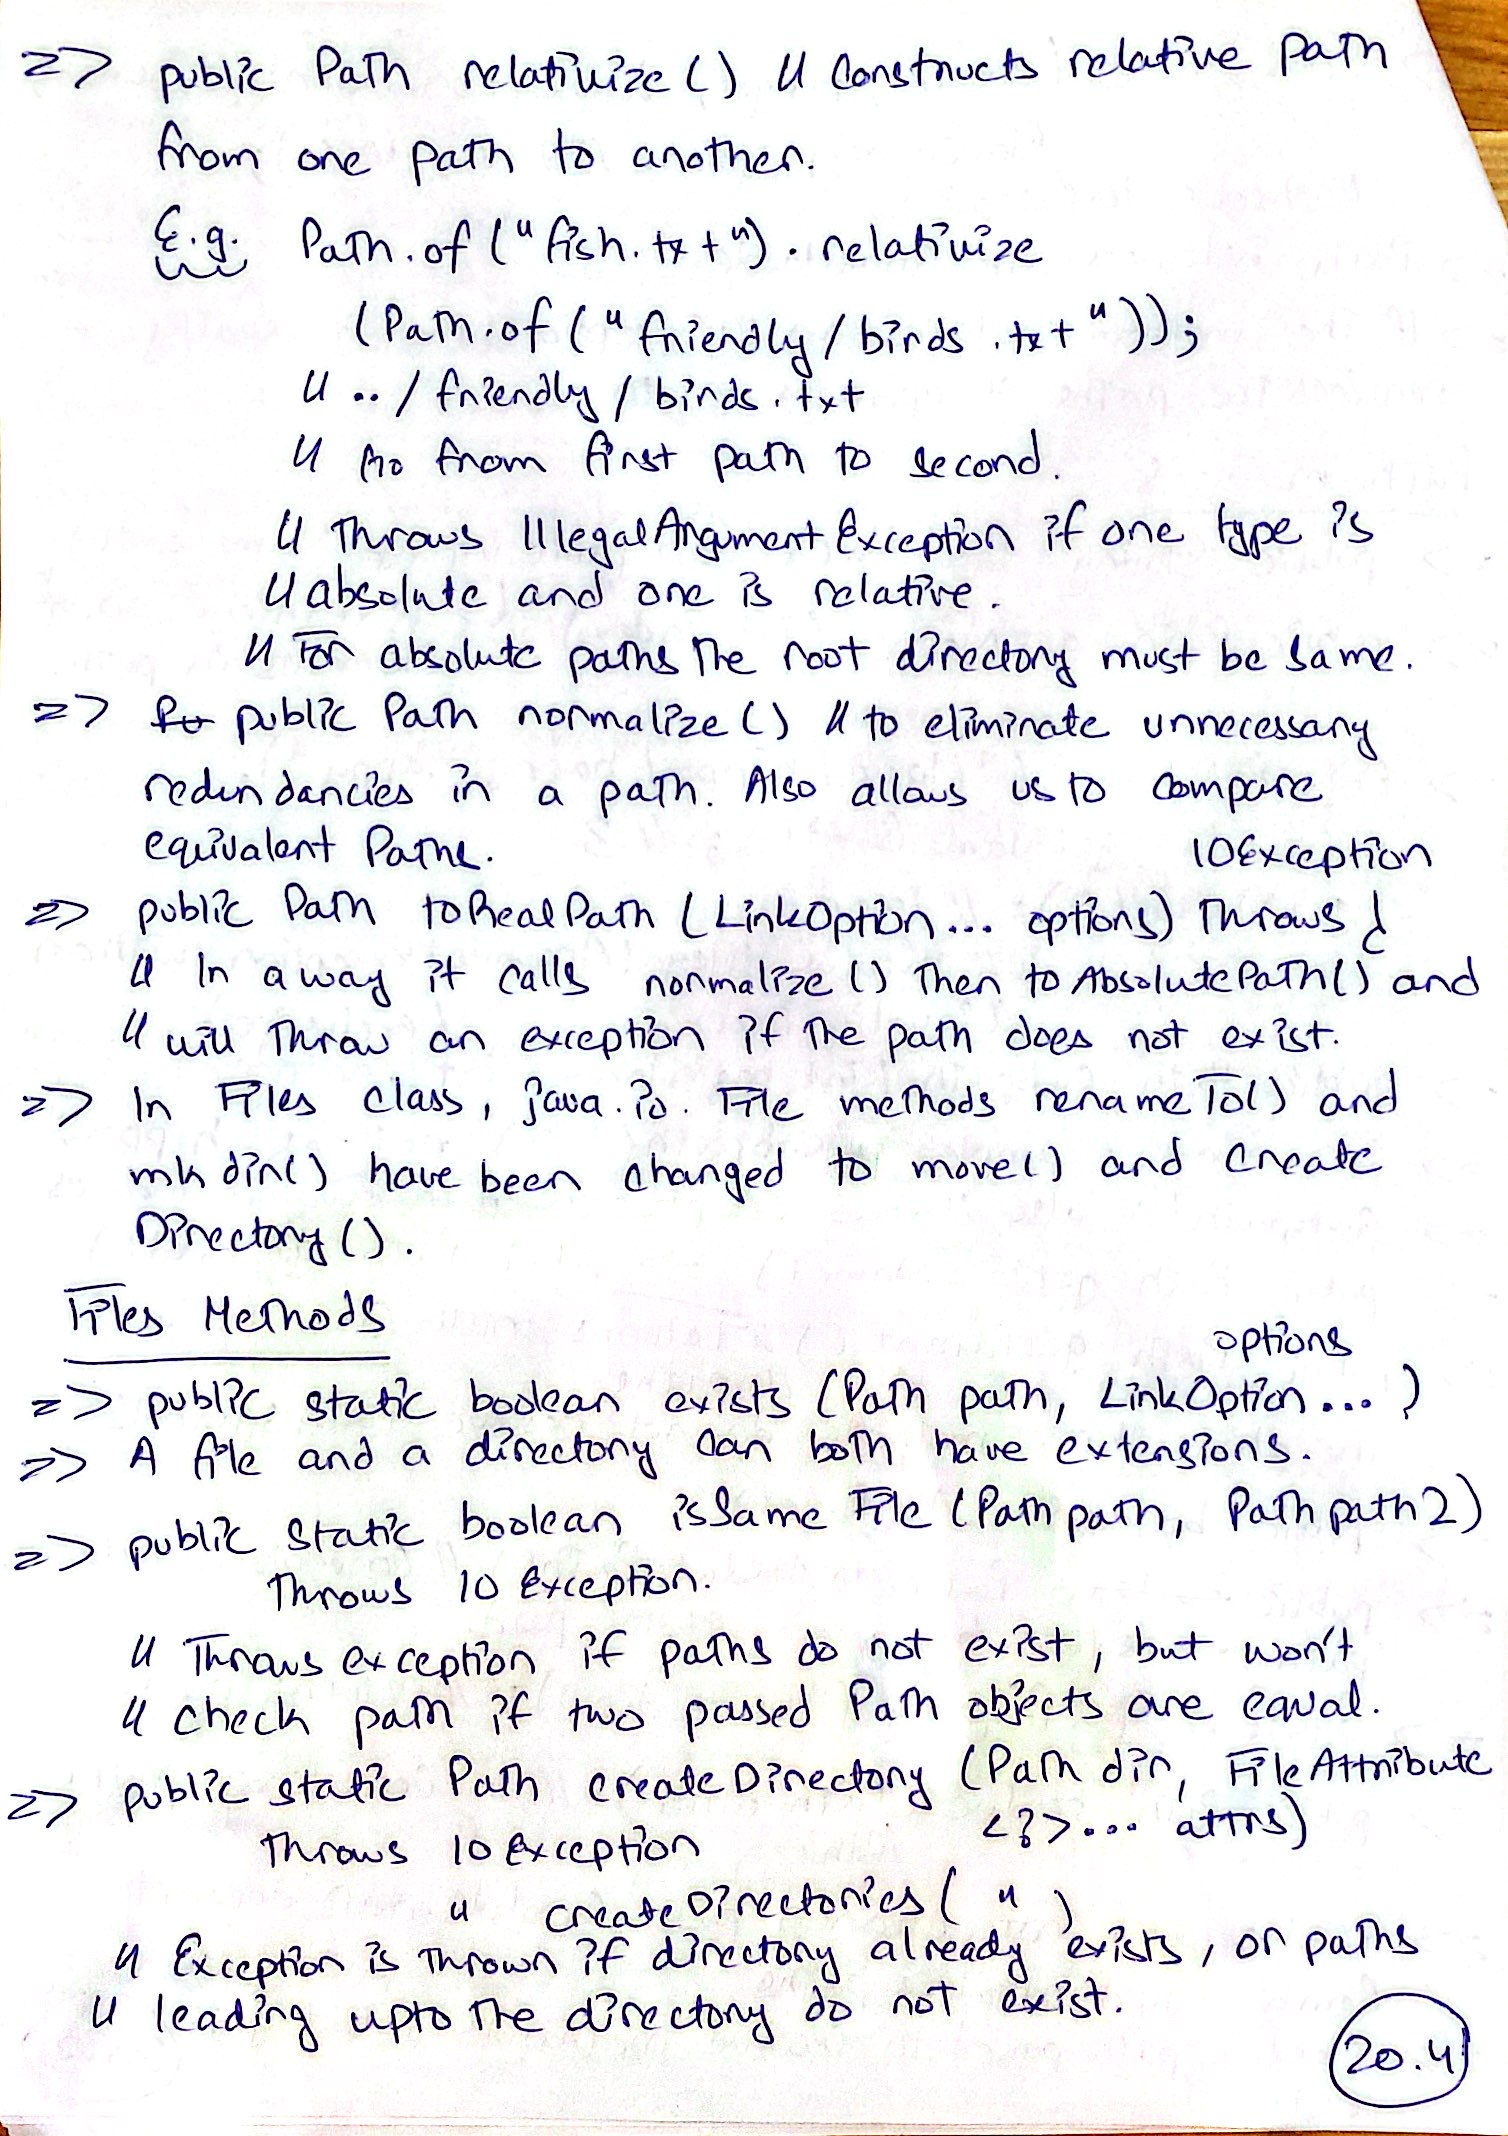 => public Path relativize() // Constructs relative path
from one path to another.
E.g. Path.of("fish.txt").relativize
(Path.of("friendly/birds.txt"));
// ../friendly/birds.txt
// Go from first path to second.
// Throws IllegalArgumentException if one type is
// absolute and one is relative.
// For absolute paths the root directory must be same.
=> public Path normalize() // to eliminate unnecessary
redundancies in a path. Also allows us to compare
equivalent Paths.
IOException
=> public Path toRealPath (LinkOption... options) throws
// In a way it calls normalize() then toAbsolutePath() and
// will throw an exception if the path does not exist.
=> In Files class, java.io.File methods renameTo() and
mkdir() have been changed to move() and create
Directory().
Files Methods
options
=> public static boolean exists (Path path, LinkOption... )
=> A file and a directory can both have extensions.
=> public static boolean isSameFile (Path path, Path path2)
throws IOException.
// Throws exception if paths do not exist, but won't
// check path if two passed Path objects are equal.
=> public static Path createDirectory (Path dir, FileAttribute
<?>... attrs)
throws IOException
" createDirectories( " )
// Exception is thrown if directory already exists, or paths
// leading upto the directory do not exist.
20.4